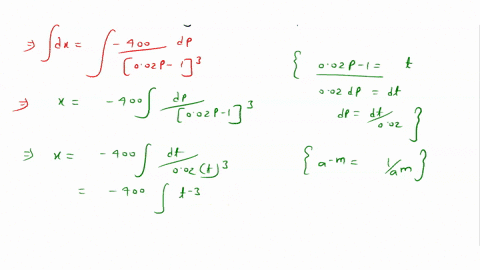 ⇒ ∫dx = ∫ -400 / [0.02P-1]^3 dp
⇒ x = -400 ∫ dp / [0.02P-1]^3
⇒ x = -400 ∫ dt / 0.02 (t)^3
= -400 ∫ t-3
{ 0.02P-1 = t
0.02 dp = dt
dp = dt/0.02 }
{ a-m = 1/am }